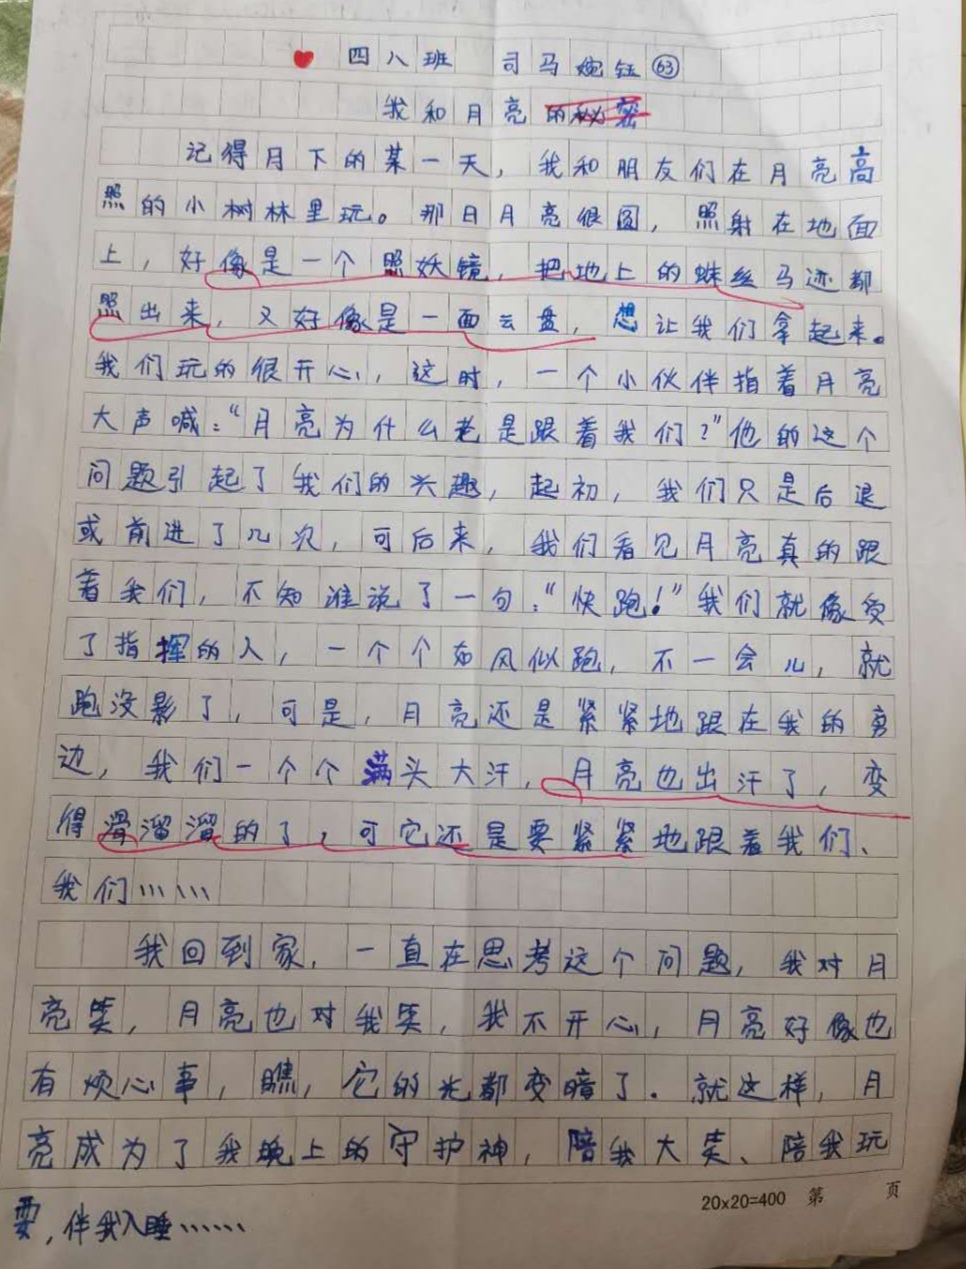 四八班 司马婉钰 63
我和月亮的秘密
记得月下的某一天，我和朋友们在月亮高
照的小树林里玩。那日月亮很圆，照射在地面
上，好像是一个照妖镜，把地上的蛛丝马迹都
照出来，又好像是一面云盘，想让我们拿起来。
我们玩的很开心，这时，一个小伙伴指着月亮
大声喊：“月亮为什么老是跟着我们？”他的这个
问题引起了我们的兴趣，起初，我们只是后退
或前进了几次，可后来，我们看见月亮真的跟
着我们，不知谁说了一句：“快跑！”我们就像受
了指挥的人，一个个如风似跑，不一会儿，就
跑没影了，可是，月亮还是紧紧地跟在我的旁
边，我们一个个满头大汗，月亮也出汗了，变
得滑溜溜的了，可它还是要紧紧地跟着我们、
我们……
我回到家，一直在思考这个问题，我对月
亮笑，月亮也对我笑，我不开心，月亮好像也
有烦心事，瞧，它的光都变暗了．就这样，月
亮成为了我晚上的守护神，陪我大笑、陪我玩
20×20=400 第 页
耍，伴我入睡……